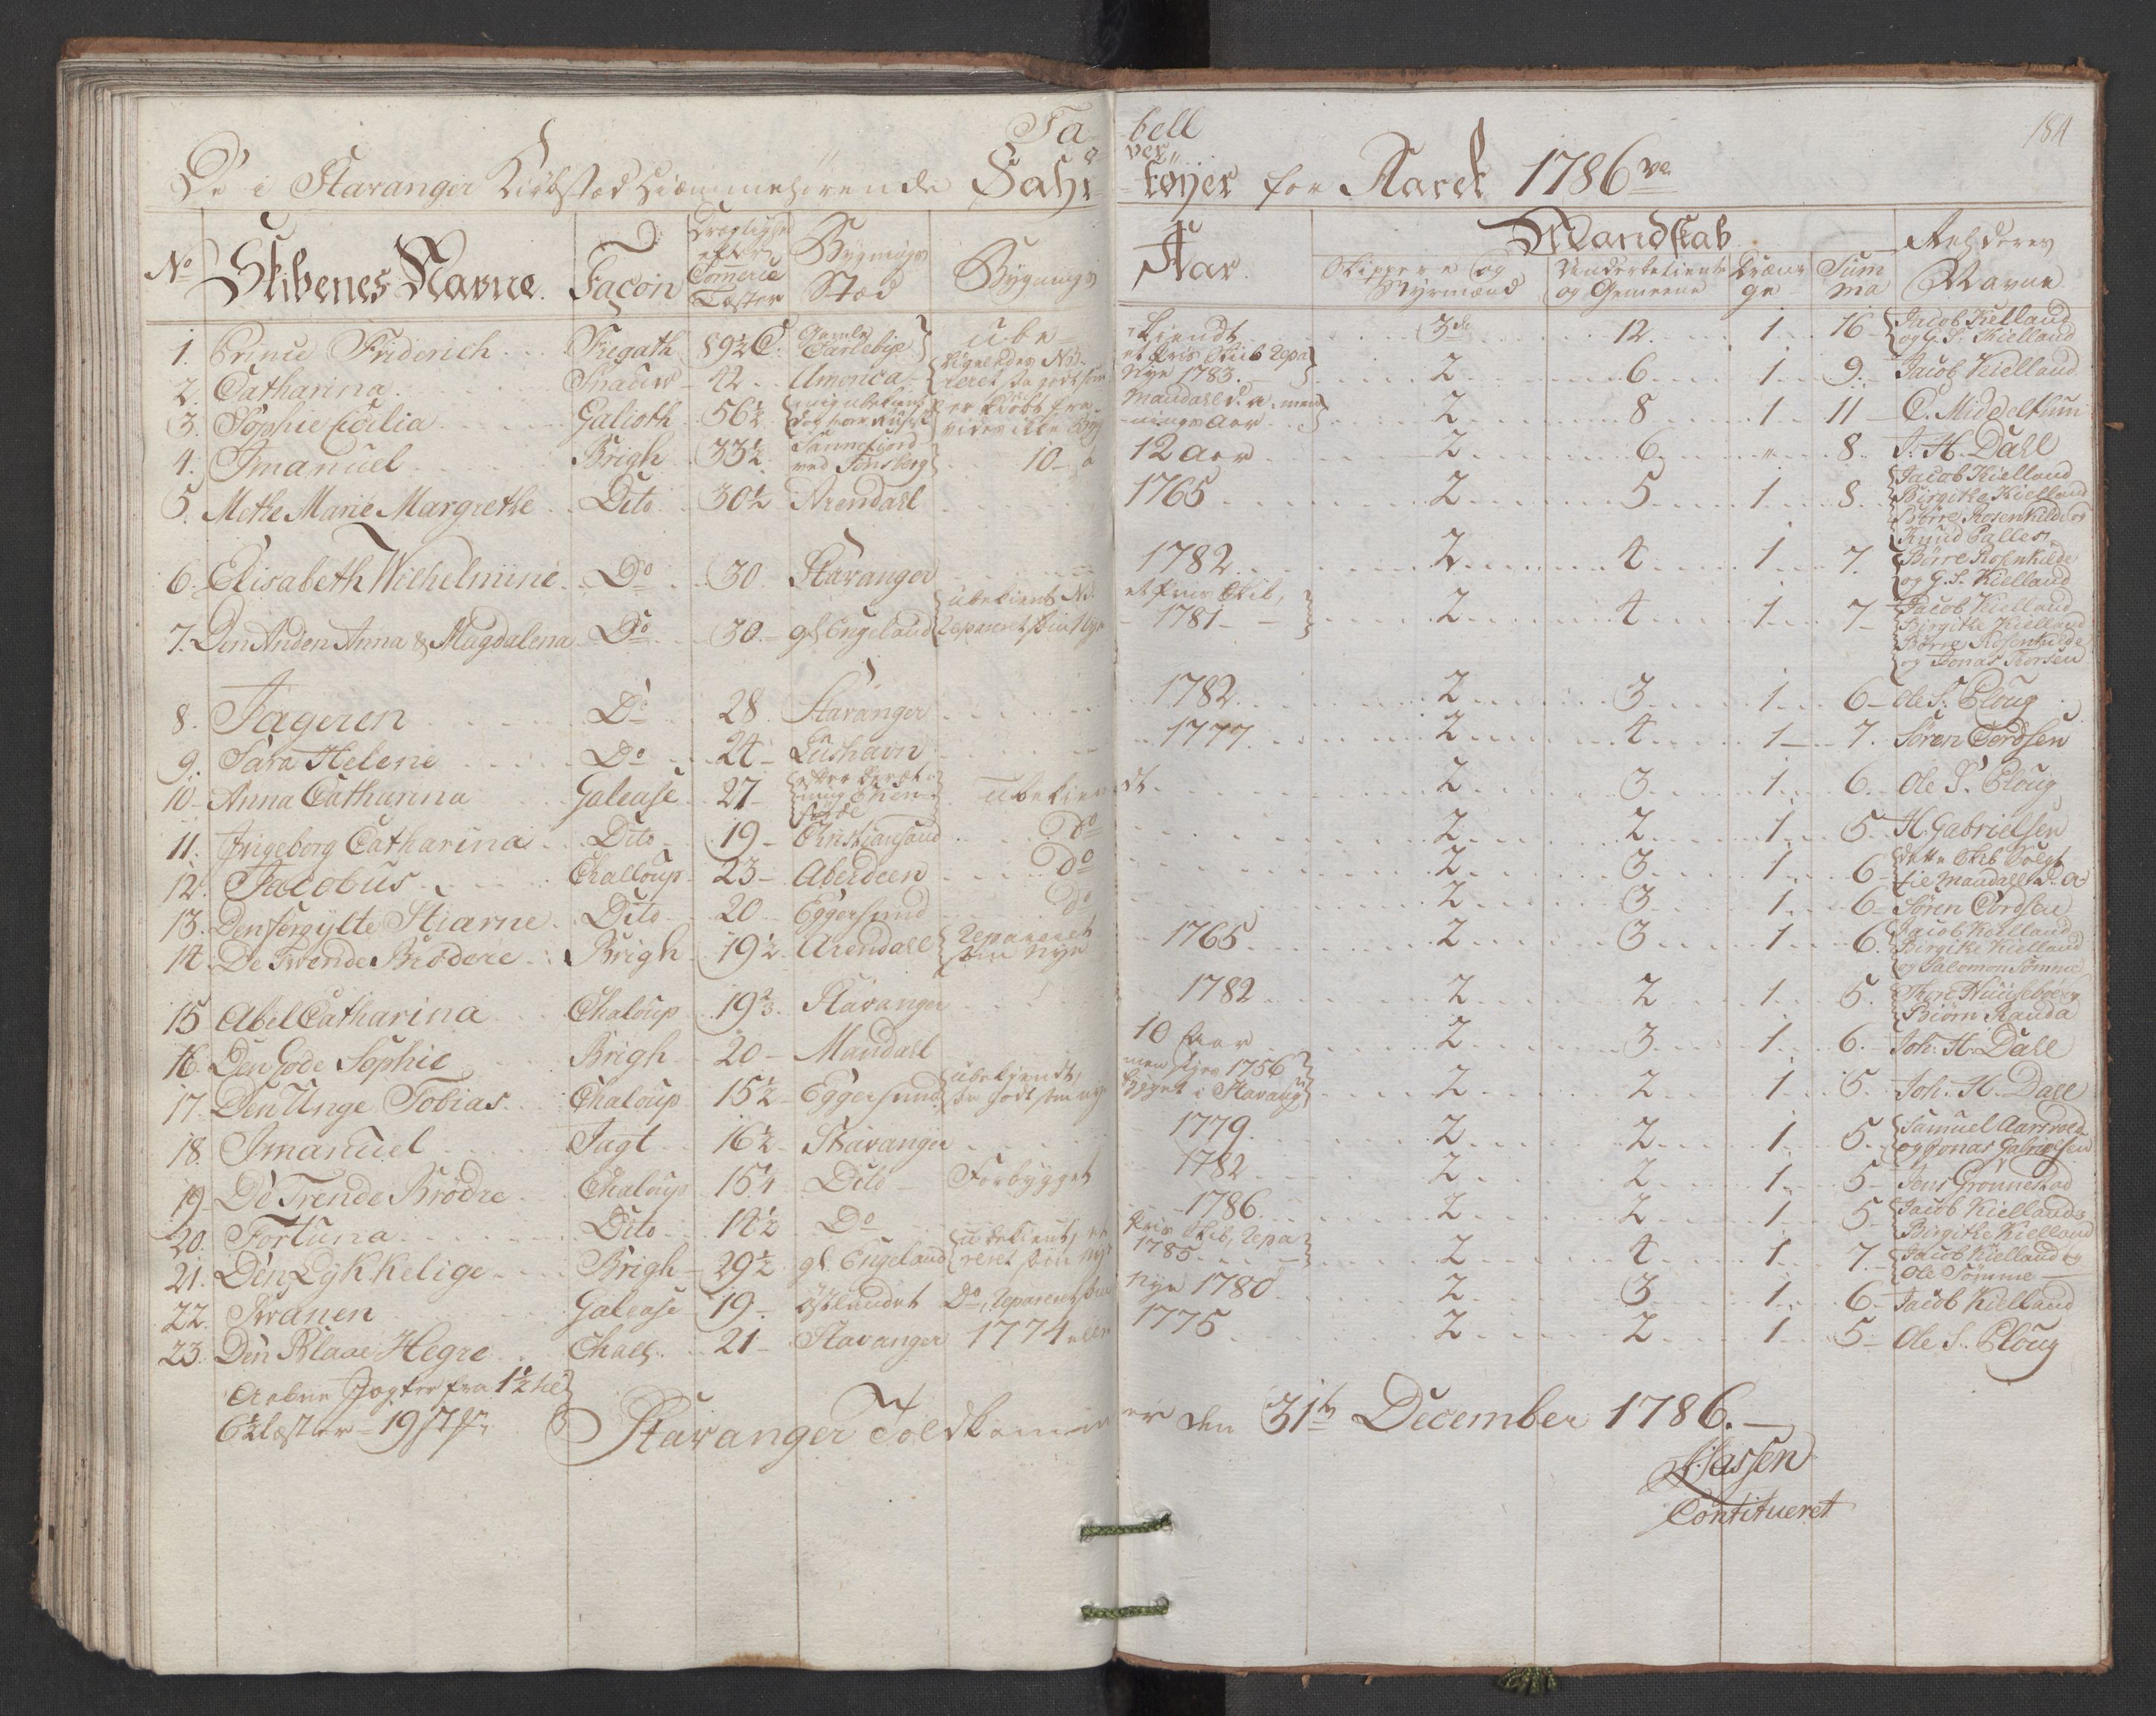 Ta- bell
over
184
De i Stavanger Kiøbstæd Hiemmehørende Fahr- tøyer for Aaret 1786ve
No Skibenes Navne. Facon Drægtighed efter Comerce Læster Bygnings Stæd Bygnings Aar. Mandskab Rehderes Navne
Skippere og Styrmænd Underbetiente og Gemeene Drænge Summa
1. Prince Friderich Fregath 89½ C. Gamle Carlebye ube- kiendt 3de 12 1 16 Jacob Kielland og G. S. Kielland
2. Catharina Snauw 42 America Nye 1783. 2 6 1 9 Jacob Kielland
3. Sophie Cicilia Galioth 56½ 2 8 1 11 C. Middelthun
4. Imanuel Brigh 33½ Sannefiord ved Tønsberg 10 à 12 Aar 2 6 " 8 J. H. Dall
5. Mette Marie Margrethe Dito 30½ Arendall 1765 2 5 1 8 Jacob Kielland Birgithe Kielland Børre Rosenkilde og Knud Palles.
6. Elisabeth Wilhelmine Do 30 Stavanger 1782 2 4 1 7 Børre Rosenkilde og G. S. Kielland
7. Den Anden Anna & Magdalena Do 30 gl. Engeland 1781 2 4 1 7 Jacob Kielland Birgithe Kielland Børre Rosenkilde og Jonas Thorsen
8. Jageren Do 28 Stavanger 1782 2 3 1 6 Ole S. Ploug
9. Sara Helene Do 24 Lushavn 1777 2 4 1 7. Søren Cordsen
10 Anna Catharina Galease 27 ubekien dt 2 3 1 6. Ole S. Ploug
11. Ingeborg Catharina Dito 19 Christiansand Do 2 2 1 5 H. Gabrielsen
12. Jacobus Challoup 23 Aberdeen Do 2 3 1 6 dette Skib Solgt til Mandall
13. Den forgylte Stierne Dito 20 Eggersund Do 2 3 1 6 Søren Cordsen
14. De Twende Brødere Brigh 19½ Arendall Repareret som Nye 1765 2 3 1 6 Jacob Kielland Birgithe Kielland og Salomon Sømme
15 Abel Catharina Chaloup 19⅔ Stavanger 1782 2 2 1 5. Biørn Randa
16. Den Gode Sophie Brigh 20 Mandall 10 Aar 2 3 1 6. Joh. H. Dall
17. Den Unge Tobias Chaloup 15½ Eggersund ubekiendt, men siges 1756 bygget i Stavang. 2 2 1 5. Joh. H. Dall
18. Imanuel Jagt 16½ Stavanger 1779 2 2 1 5 Samuel og Jonas Gabrielsen
19 De Trende Brødre Chaloup 15¼ Dito Forbygget 1782 2 2 1 5 Jens Grønnestad
20. Fortuna Dito 14½ Do 1786 2 2 1 5 Jacob Kielland & Birgithe Kielland
21. Den Lykkelige Brigh 29½ gl. Engeland ubekient, et Priis Skib, Repareret som Nye 1785 2 4 1 7. Jacob Kielland og Ole Sømme
22. Swanen Galease 19 Østlandet Do, Repareret som Nye 1780 2 3 1 6 Jacob Kielland
23. Den Blaae Hegre Chall. 21 Stavanger 1774 eller 1775 2 2 1 5 Ole S. Ploug
Aabne Jagter fra 1½ til
6½ læster 19
Stavanger Toldkammer den 31te December 1786.
Hassen
Contitueret